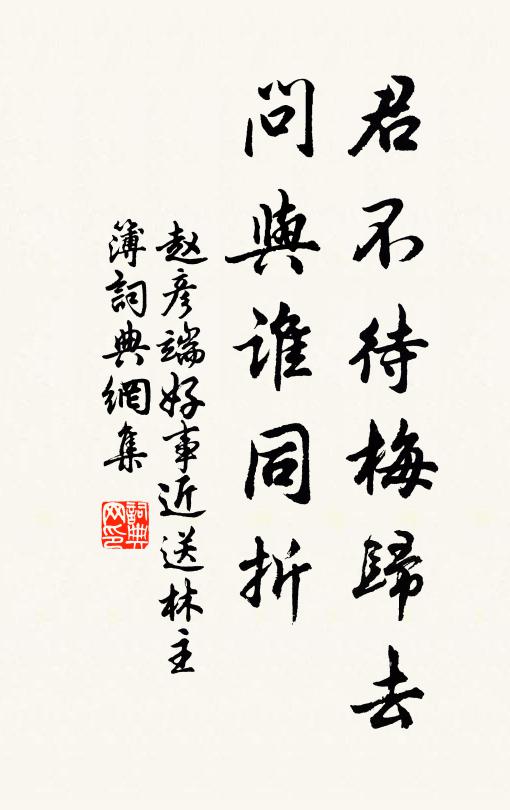 君不待梅歸去
問與誰同折
赵彦端好事近送林主
簿詞典網集
詞典网印